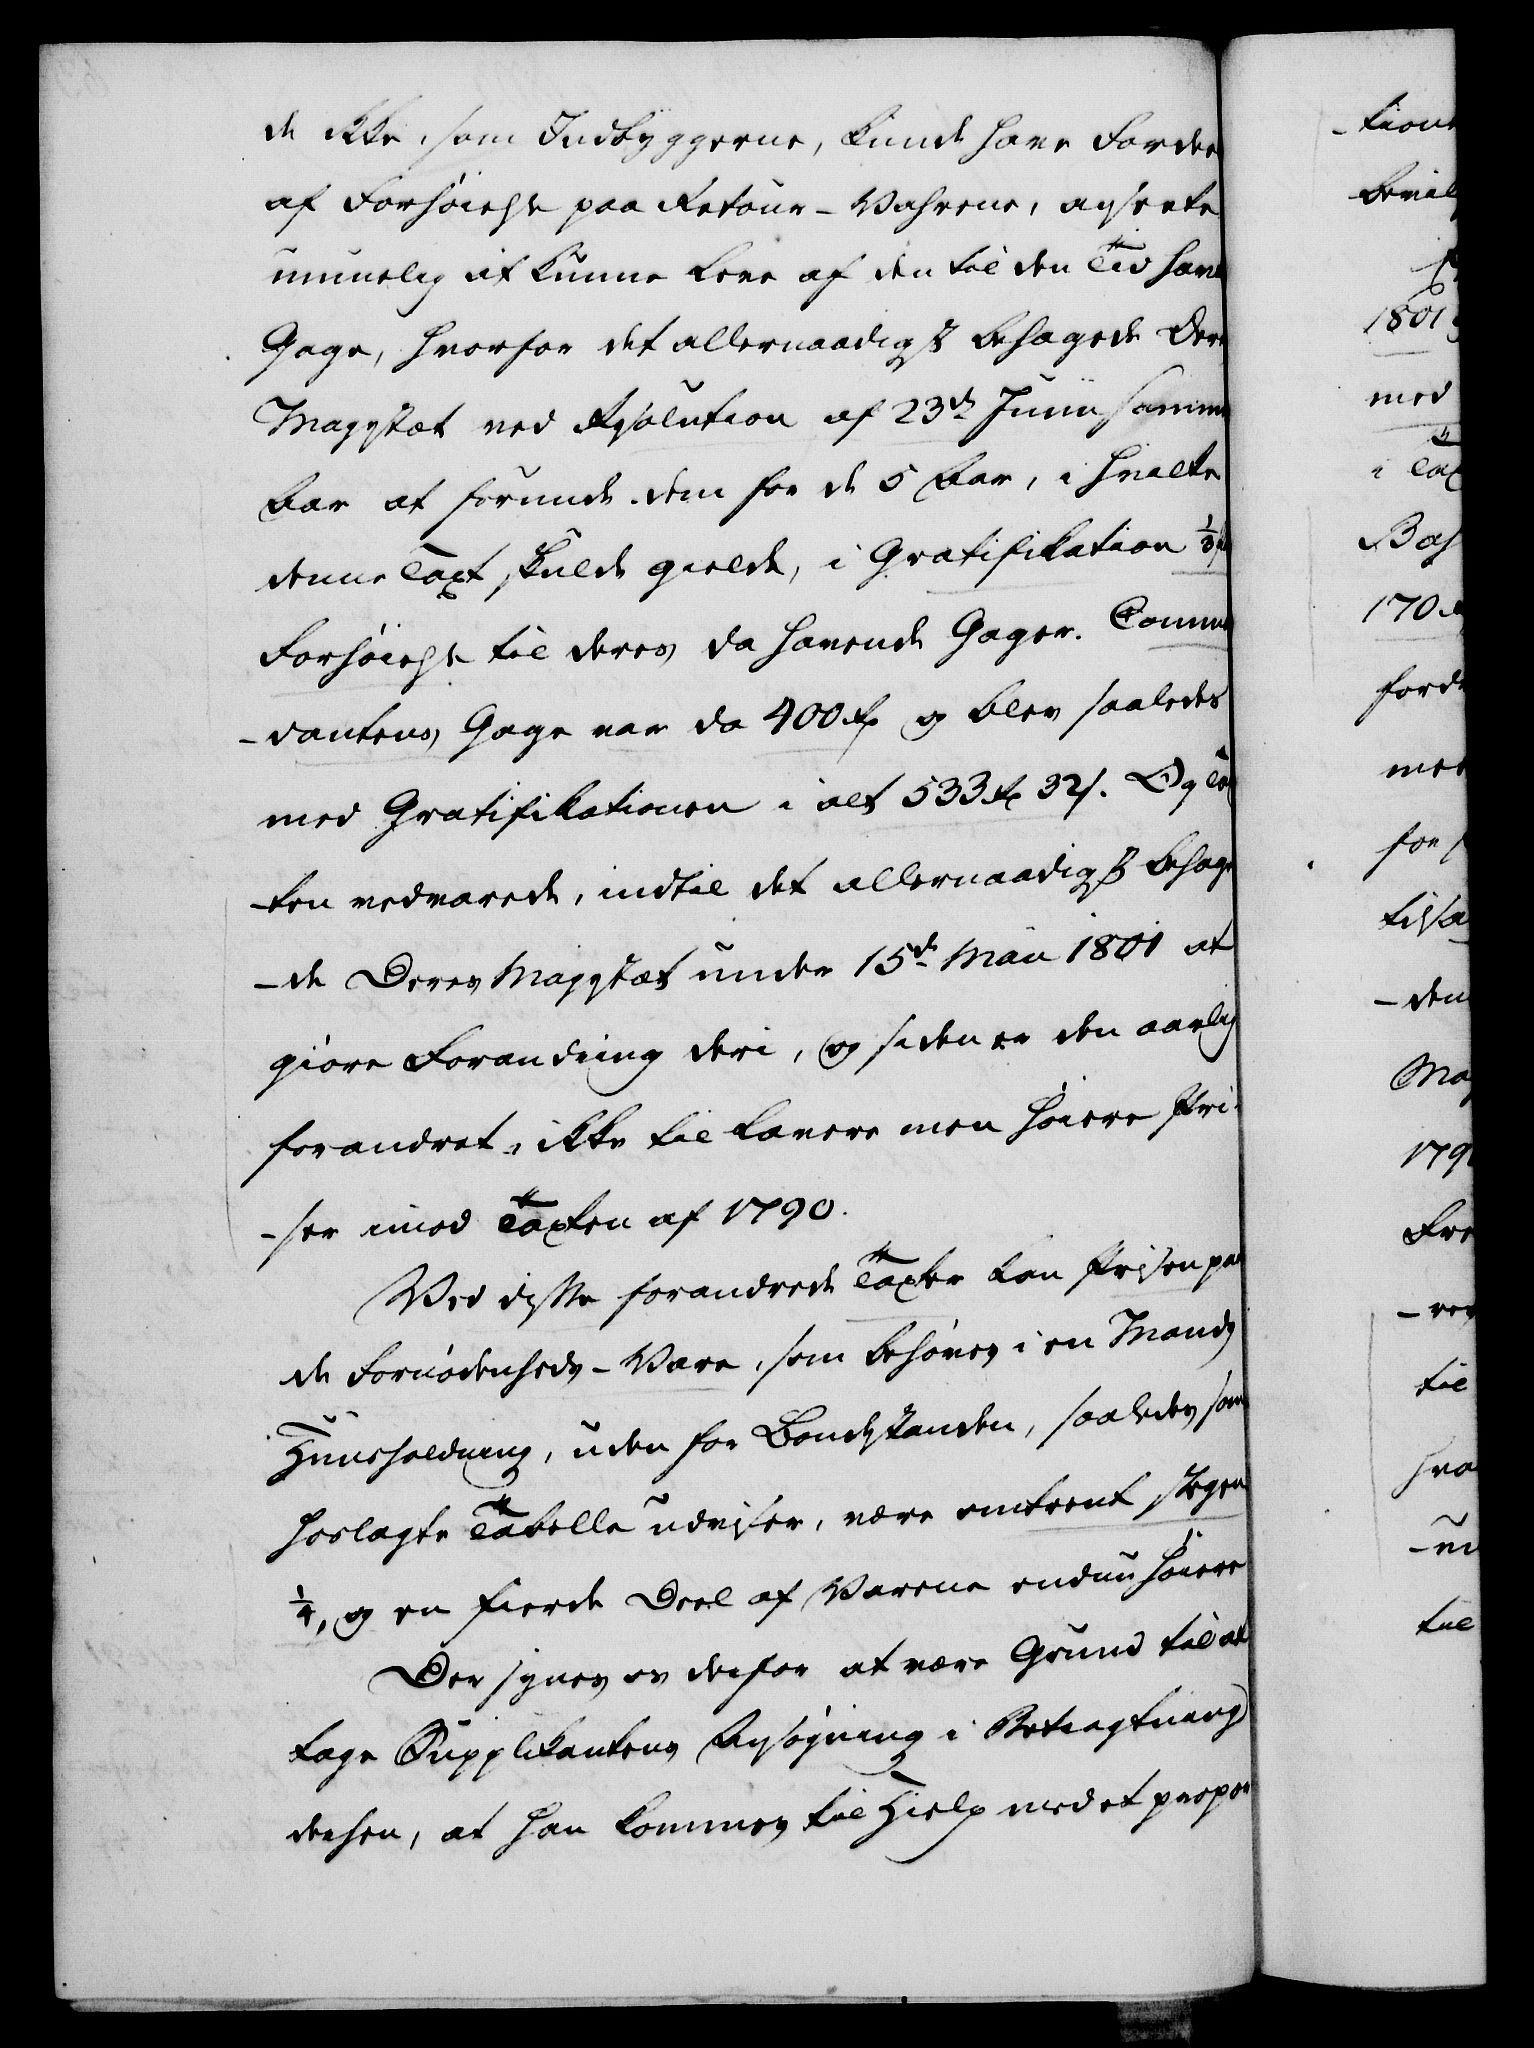 de ikke, som Indbyggerne, kunde have Fordee
af Forhöielse paa Retour-Vahrene, agtede
umuelig at kunne leve af den til den Tid hav
Gage, hvorfor det allernaadigst behagede Dere
Mayestæt ved Resolution af 23de Junii samme
Aar at forunde dem for de 5 Aar, i hvilke
denne Taxt skulde gielde, i Gratifikation 1/3
Forhöielse til deres da havende Gager. Comme
-dantens Gage var da 400 rd og blev saaledes
med Gratifikationen i alt 533 rd 32 s. Og Tax
-ten vedvarede, indtil det allernaadigst behage
-de Deres Mayestæt under 15de Maii 1801 at
giöre Forandring deri, og siden er den aarlig
forandret, ikke til lavere men höiere Pri-
-ser imod Taxten af 1790.
Ved disse forandrede Taxter kan Prisen paa
de Fornödenheds-Vare, som behöves i en Mands
Huusholdning, uden for Bondestanden, saaledes som
hoslagte Tabelle udviser, være omtrent stegen
1/4, og en fierde Deel af Varene endnu höiere
Der synes os derfor at være Grund til at
tage Supplikantens Ansögning i Betragtning
derhen, at han kommes til Hielp med et propor
-tione
bevil
1801
med
i Tax
Bas
170 rd
ford
med
for
tilsa
-den
Ma
179
Fre
-res
til
hva
-un
til